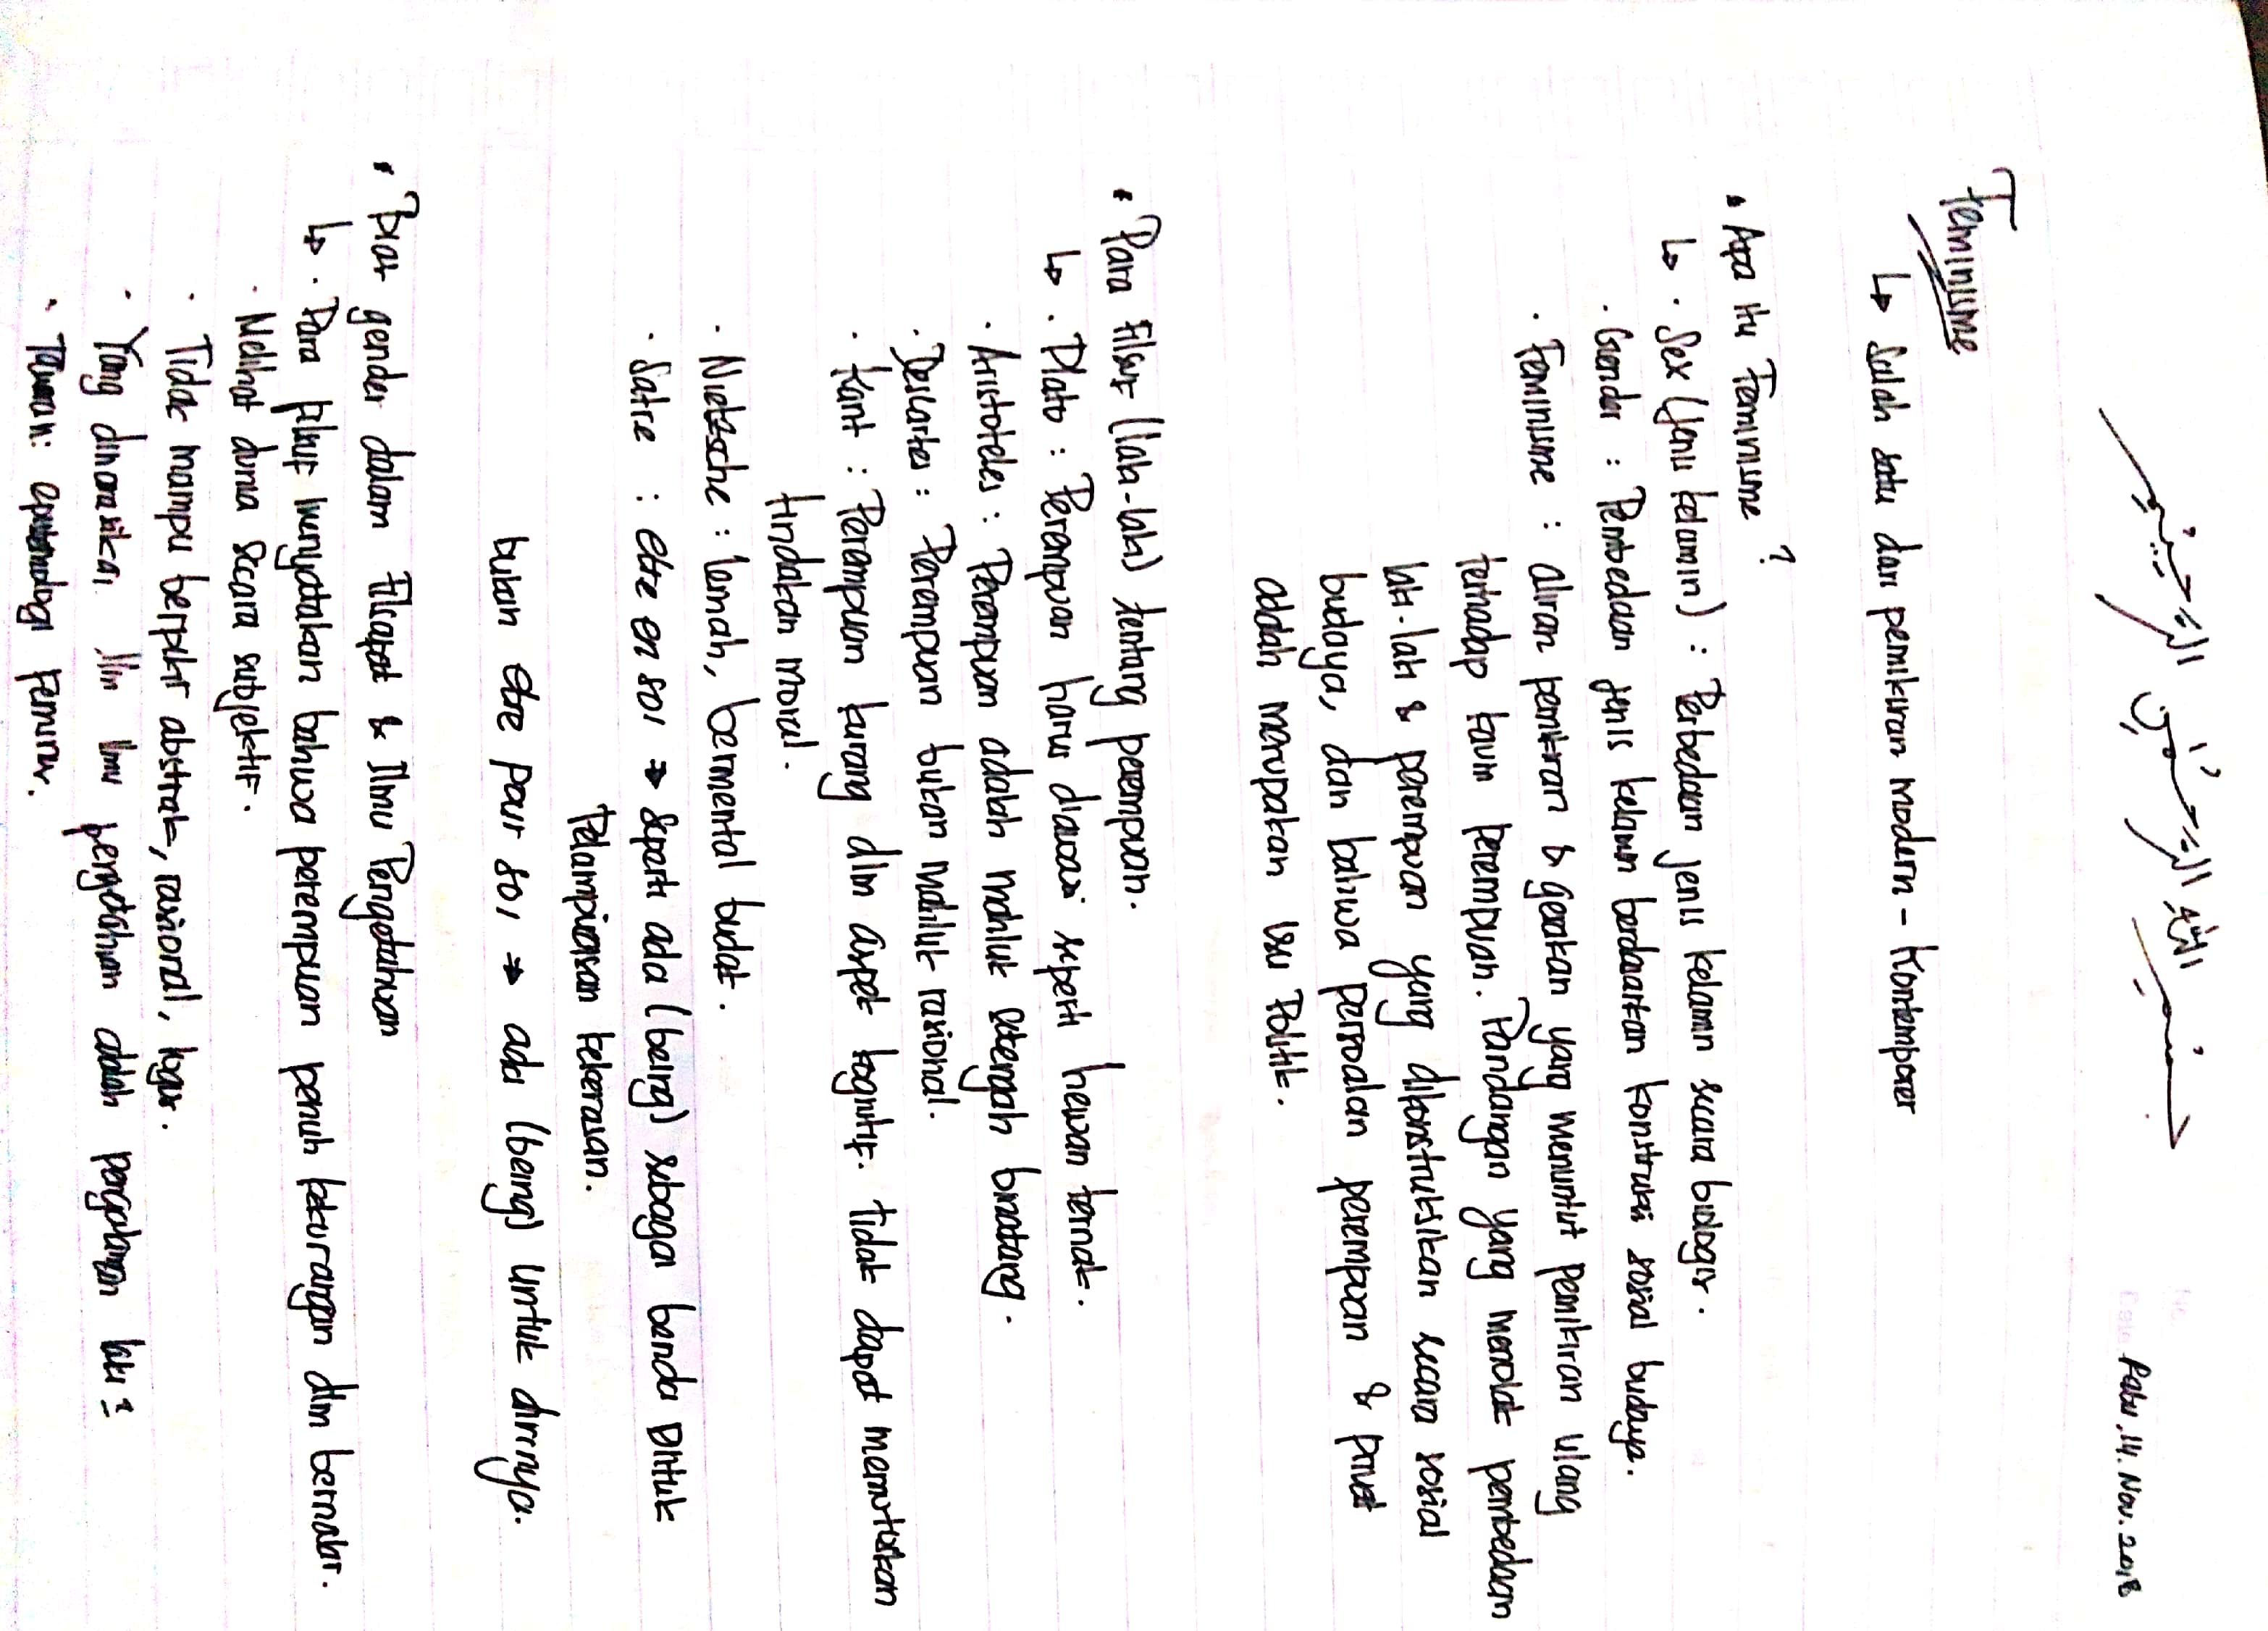 بسم الله الرحمن الرحيم
Rabu. 14. Nov. 2018
Feminisme
↳ Salah satu dari pemikiran modern - Kontemporer
• Apa itu Feminisme?
↳ · Sex (jenis kelamin) : Perbedaan jenis kelamin secara biologis.
· Gender : Pembedaan jenis kelamin berdasarkan konstruksi sosial budaya.
· Feminisme : aliran pemikiran & gerakan yang menuntut pemikiran ulang
terhadap kaum perempuan. Pandangan yang menolak pembedaan
laki-laki & perempuan yang dikonstruksikan secara sosial
budaya, dan bahwa persoalan perempuan & privat
adalah merupakan isu Politik.
• Para filsuf (laki-laki) tentang perempuan.
↳ · Plato : Perempuan harus diawasi seperti hewan ternak.
· Aristoteles : Perempuan adalah mahluk setengah binatang.
· Descartes : Perempuan bukan mahluk rasional.
· Kant : Perempuan kurang dlm aspek kognitif. Tidak dapat memutuskan
tindakan moral.
· Nietzsche : lemah, bermental budak.
· Satre : etre en soi → seperti ada (being) sebagai benda untuk
Pelampiasan kekerasan.
bukan etre pour soi → ada (being) untuk dirinya.
• Bias gender dalam Filsafat & Ilmu Pengetahuan
↳ · Para filsuf menyatakan bahwa perempuan penuh kekurangan dlm bernalar.
· Melihat dunia secara subjektif.
· Tidak mampu berpikir abstrak, rasional, logis.
· Yang dinarasikan dlm ilmu pengetahuan adalah pengalaman laki²
· Tawaran: epistemologi feminis.